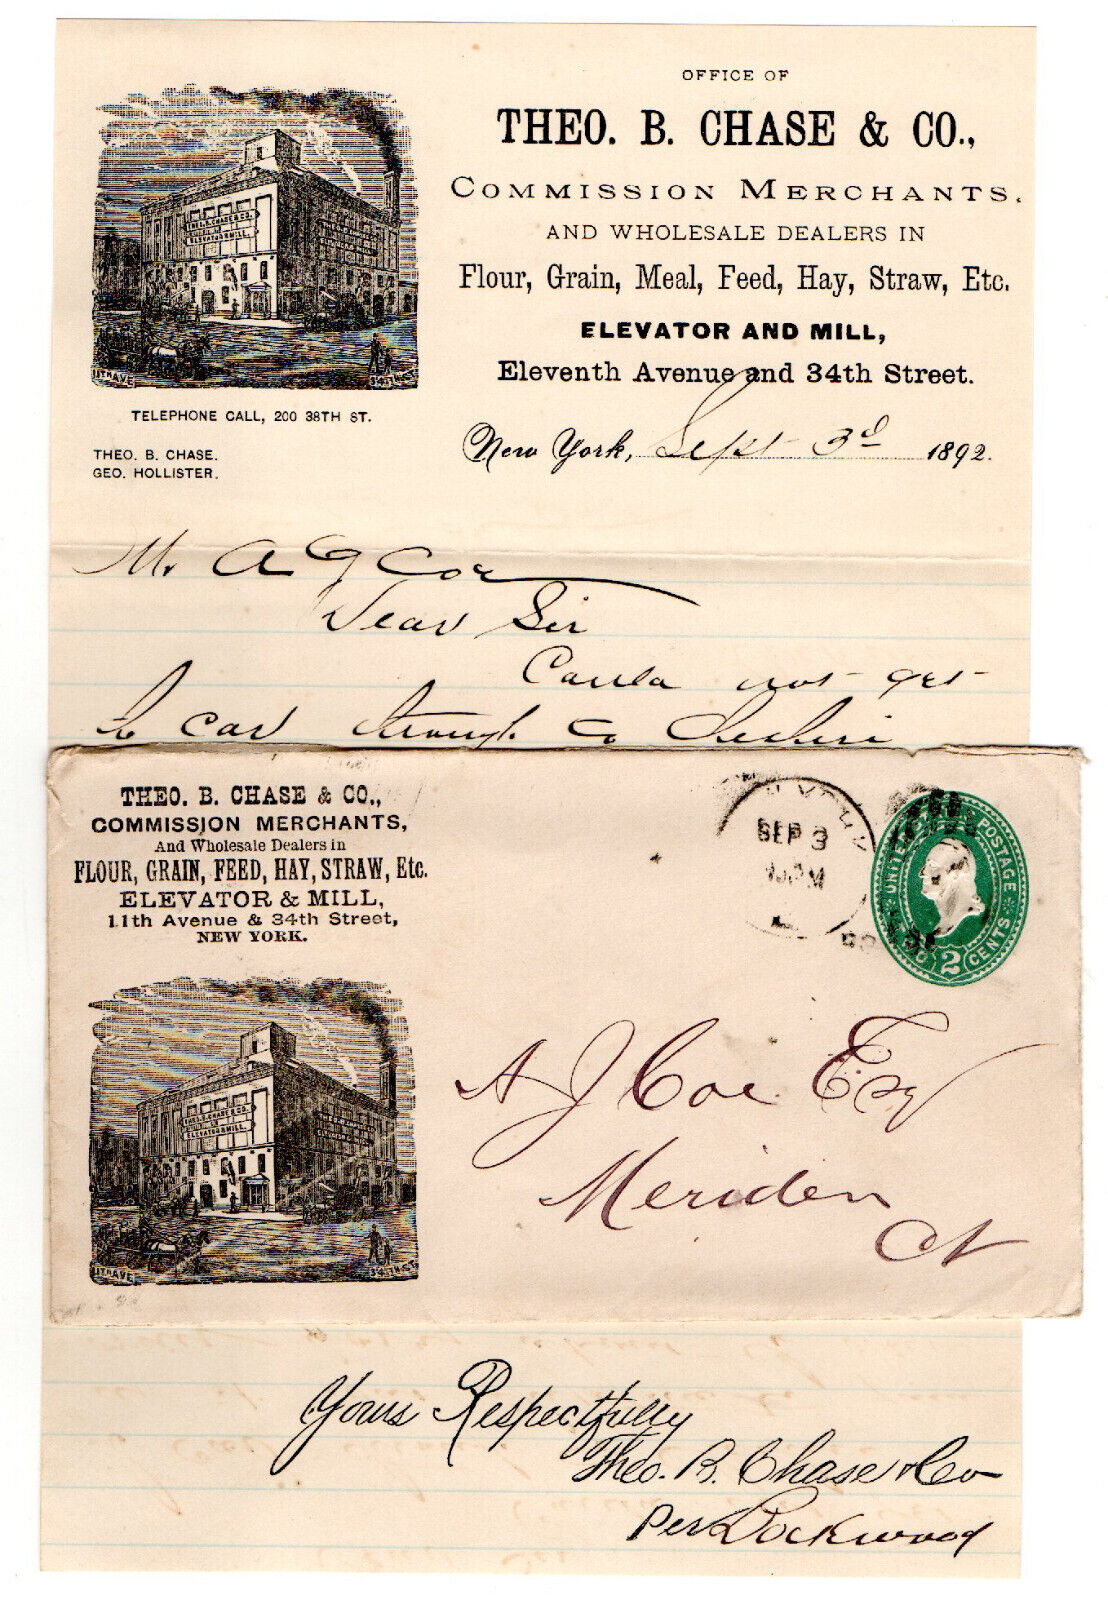 OFFICE OF
THEO. B. CHASE & CO.,
COMMISSION MERCHANTS,
AND WHOLESALE DEALERS IN
Flour, Grain, Meal, Feed, Hay, Straw, Etc.
ELEVATOR AND MILL,
Eleventh Avenue and 34th Street.
THEO. B. CHASE & CO.
ELEVATOR & MILL.
11TH AVE
34TH ST.
TELEPHONE CALL, 200 38TH ST.
THEO. B. CHASE.
GEO. HOLLISTER.
New York, Sept 3d 1892.
Mr. A J Coe
Dear Sir
not get
car through to
THEO. B. CHASE & CO.,
COMMISSION MERCHANTS,
And Wholesale Dealers in
FLOUR, GRAIN, FEED, HAY, STRAW, Etc.
ELEVATOR & MILL,
11th Avenue & 34th Street,
NEW YORK.
THEO. B. CHASE & CO.
ELEVATOR & MILL.
11TH AVE
34TH ST.
SEP 3
UNITED POSTAGE
2 CENTS
A J Coe Esq
Meriden
Ct
Yours Respectfully
Theo. B. Chase & Co
Per Lockwood